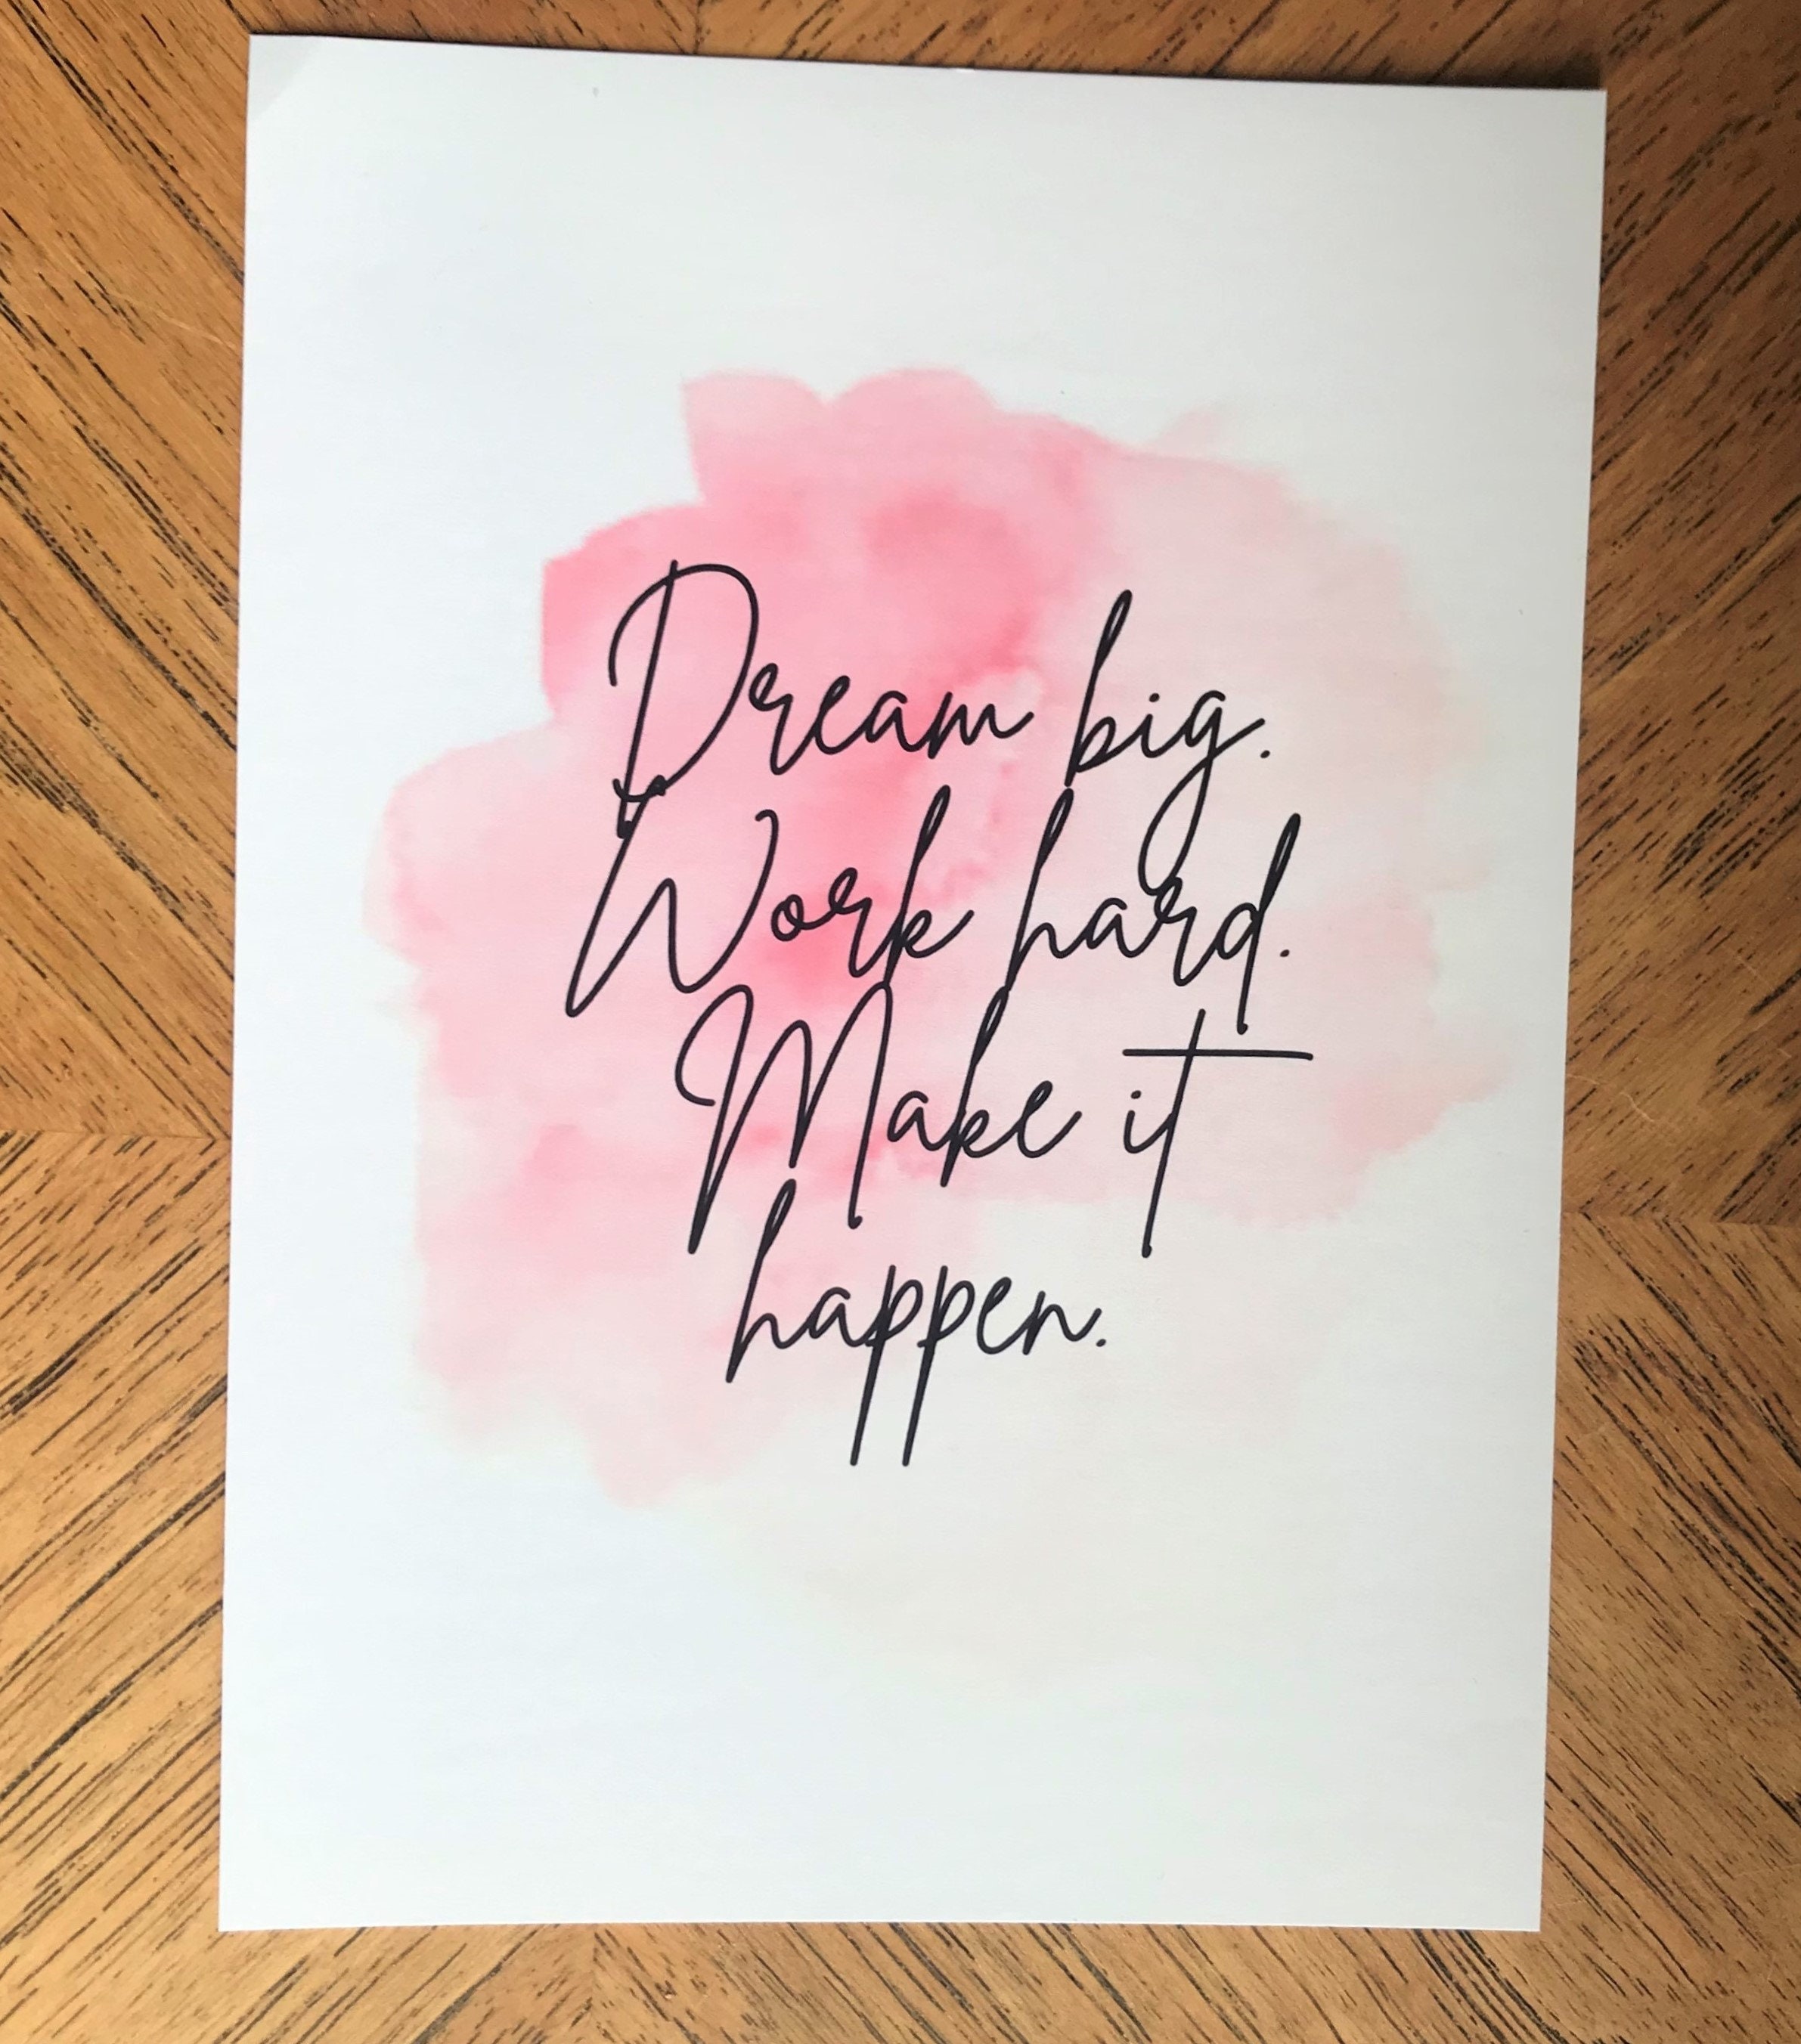 Dream big.
Work hard.
Make it
happen.